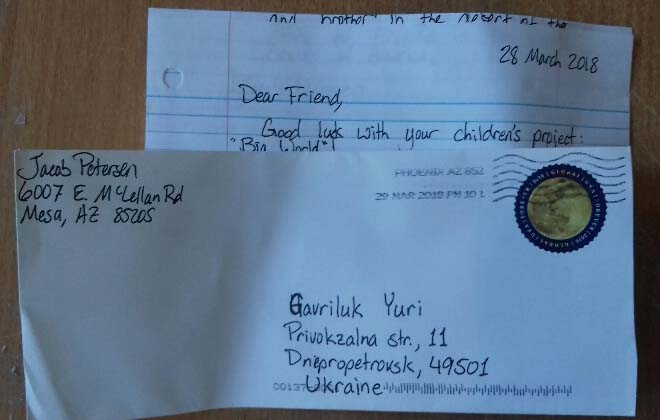 and brother in the desert of the
28 March 2018
Dear Friend,
Good luck with your children's project:
"Big World"!
Jacob Petersen
6007 E. McLellan Rd
Mesa, AZ 85205
PHOENIX AZ 852
29 MAR 2018 PM 10 L
GLOBAL USA FOREVER 2016 GLOBAL USA FOREVER 2016
Gavriluk Yuri
Privokzalna str., 11
Dnepropetrovsk, 49501
Ukraine